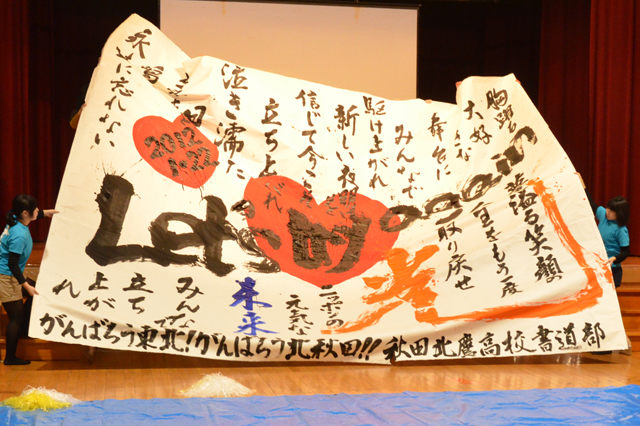 胸躍る
大好きな
舞台に
みんなで
駆け上がれ
新しい夜明け
信じて今こそ
立ち上がれ
泣き濡れた
忘れない
2012
1.22
Let's
again
笑顔
もう一度
取り戻せ
光
ニッポンの
元気な
未来
みんなで
立ち
上がれ
がんばろう東北!がんばろう北秋田!! 秋田北鷹高校書道部